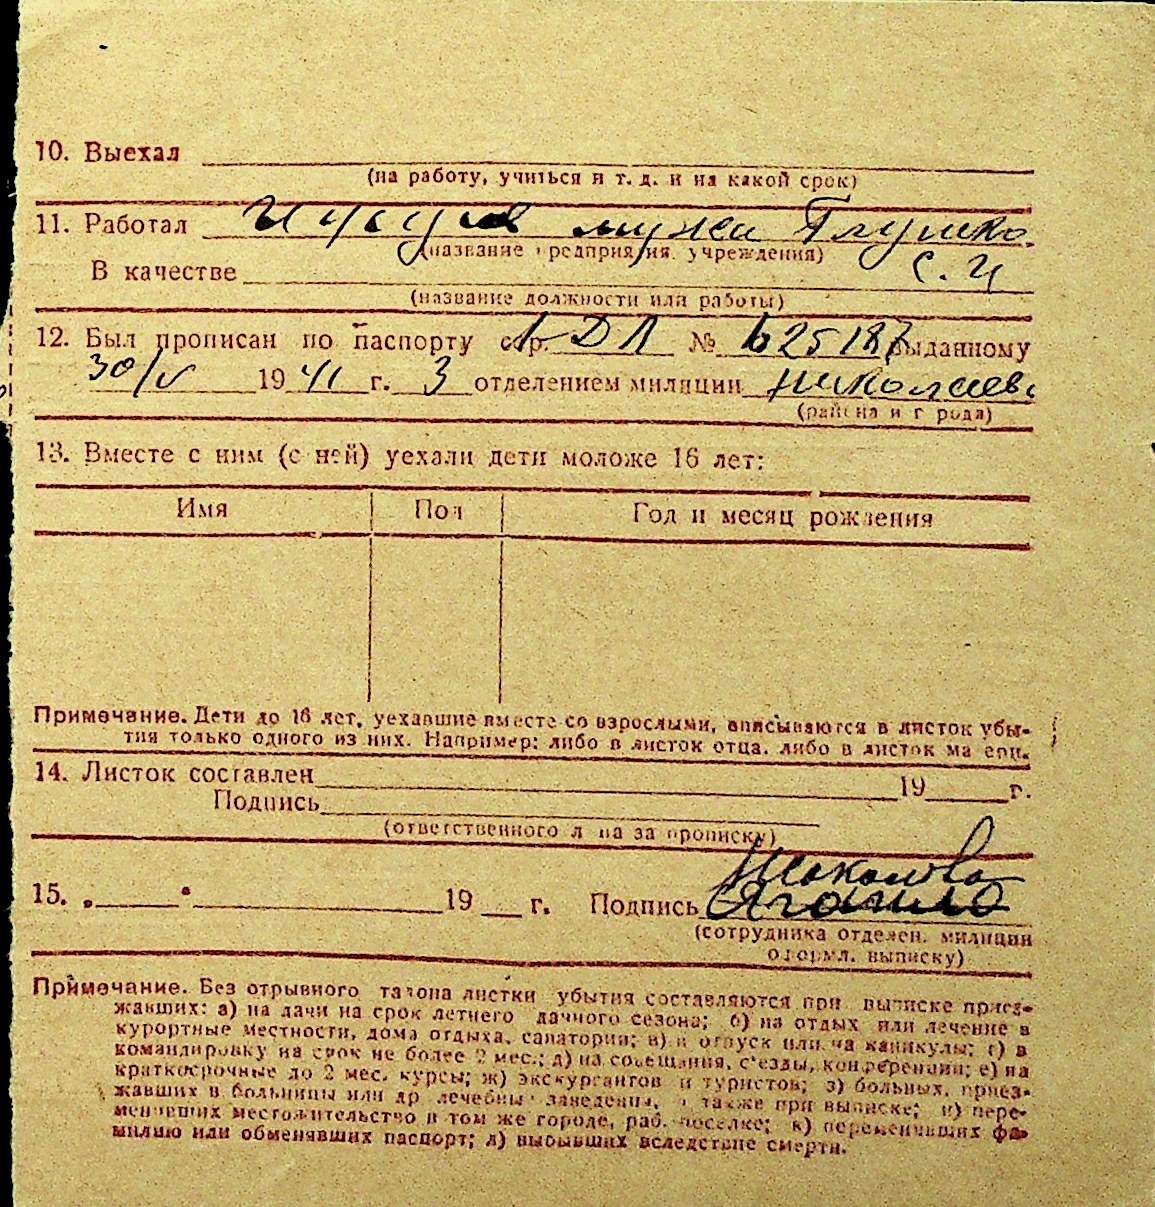 10. Выехал
(на работу, учиться и т. д. и на какой срок)
11. Работал мужа Глушко
(название предприятия, учреждения) С. И
В качестве
(название должности или работы)
12. Был прописан по паспорту сер. ДЛ № 625187 выданному
30/V 1941 г. 3 отделением милиции Николаев
(района и города)
13. Вместе с ним (с ней) уехали дети моложе 16 лет:
Имя Пол Год и месяц рождения
Примечание. Дети до 16 лет, уехавшие вместе со взрослыми, вписываются в листок убы-
тия только одного из них. Например: либо в листок отца, либо в листок матери.
14. Листок составлен 19 г.
Подпись
(ответственного лица за прописку)
15. „ “ 19 г. Подпись
(сотрудника отделен. милиции
оформл. выписку)
Примечание. Без отрывного талона листки убытия составляются при выписке приез-
жавших: а) на дачи на срок летнего дачного сезона; б) на отдых или лечение в
курортные местности, дома отдыха, санатории; в) в отпуск или на каникулы; г) в
командировку на срок не более 2 мес.; д) на совещания, съезды, конференции; е) на
краткосрочные до 2 мес. курсы; ж) экскурсантов и туристов; з) больных, приез-
жавших в больницы или др. лечебные заведения, а также при выписке; и) пере-
менивших местожительство в том же городе, раб. поселке; к) переменивших фа-
милию или обменявших паспорт; л) выбывших вследствие смерти.